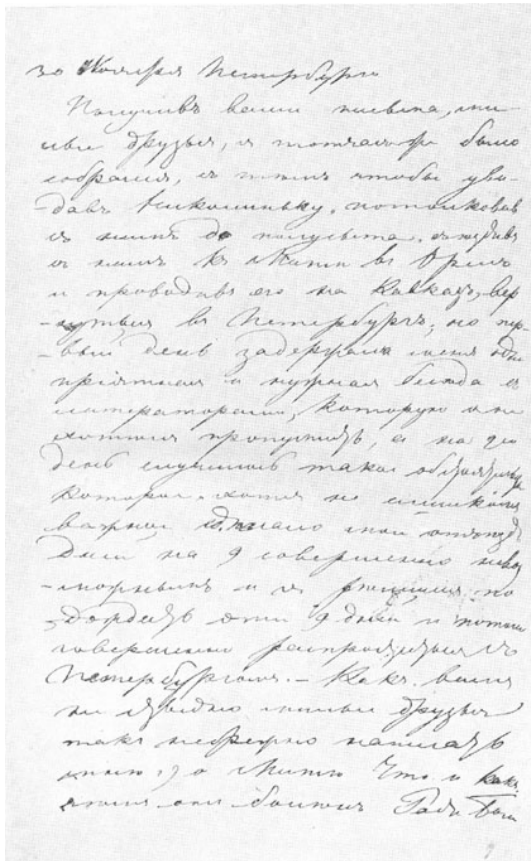 30 Ноября Петербургъ
Получивъ ваши письма, ми-
лые друзья, я тотчасъ же было
собрался, съ тѣмъ чтобы уви-
-давъ Николиньку, потолковавъ
съ нимъ до полусвѣта, съѣздивъ
съ нимъ къ Мити въ Орелъ
и проводивъ его на Кавказъ, вер-
-нуться въ Петербургъ; но пер-
-вый день задержала меня одна
пріятная и нужная бесѣда съ
литераторами, которую мнѣ
хотѣлось пропустить, а на 2й
день случилось такое обстоятельство
которое хотя не слишкомъ
важное сдѣлало мой отъѣздъ
дней на 9 совершенно невоз-
-можнымъ и я рѣшился по-
дождать эти 9 дней и потомъ
совершенно распроститься съ
Петербургомъ. – Какъ вамъ
не стыдно милые друзья
такъ небрежно написать
мнѣ о Мити Что и какъ
онъ боленъ Ради Бога